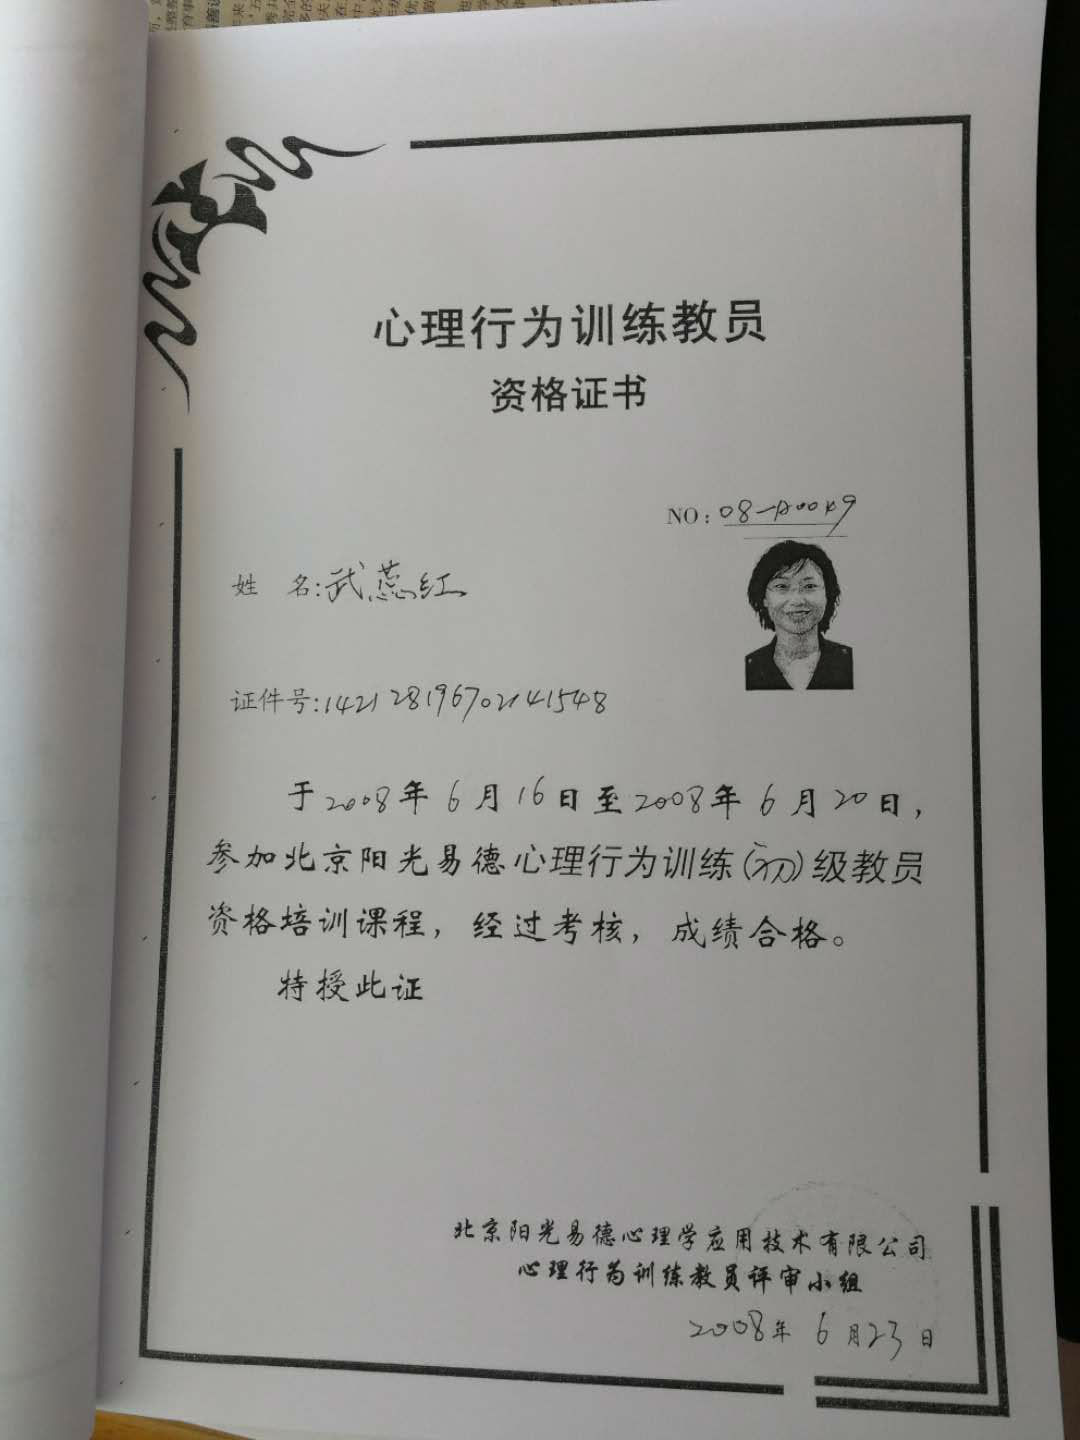 心理行为训练教员
资格证书
NO：08-A0049
姓 名：武蕊红
证件号：142128196702141548
于2008年6月16日至2008年6月20日，
参加北京阳光易德心理行为训练（初）级教员
资格培训课程，经过考核，成绩合格。
特授此证
北京阳光易德心理学应用技术有限公司
心理行为训练教员评审小组
2008年6月23日